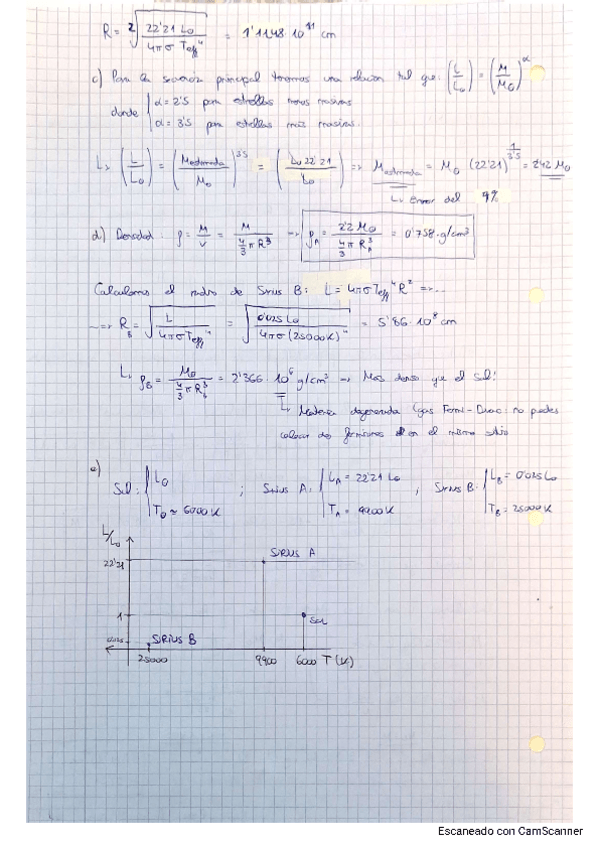 R = 2√(22'21 L₀ / 4πσ Teff⁴) = 1'1148·10¹¹ cm
c) Para la secuencia principal tenemos una relación tal que: (L/L₀) = (M/M₀)^α
donde { α = 2'5 para estrellas menos masivas
α = 3'5 para estrellas más masivas.
L> (L/L₀) = (Mestimada/M₀)^3'5 = (L₀ 22'21/L₀) => Mestimada = M₀ (22'21)^(1/3'5) = 2'42 M₀
↳ Error del 9%
d) Densidad: ρ = M/V = M / (4/3 π R³) → ρA = 2'2 M₀ / (4/3 π RA³) = 0'758 g/cm³
Calculamos el radio de Sirius B: L = 4πσTeff⁴ R² => ...
...=> RB = √(L / 4πσTeff⁴) = √(0'025 L₀ / 4πσ(25000K)⁴) = 5'86·10⁸ cm
L> ρB = M₀ / (4/3 π Rb³) = 2'366·10⁶ g/cm³ → Mas denso que el sol!
↳ Materia degenerada (gas Fermi-Dirac: no puedes
colocar dos fermiones en el mismo sitio
e)
Sol: { L₀ ; Sirius A: { LA = 22'21 L₀ ; Sirius B: { LB = 0'025 L₀
T₀ ≈ 6000K TA = 9900K TB = 25000K
L/L₀
22'21 SIRIUS A
1 Sol
0'025 SIRIUS B
25000 9900 6000 T(K)
Escaneado con CamScanner